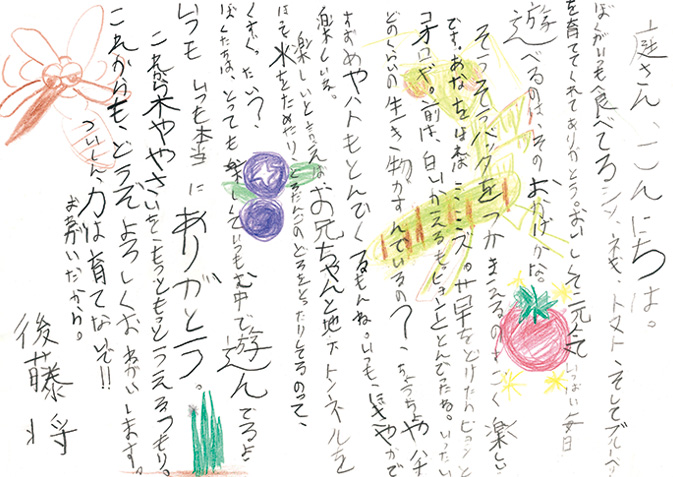 庭さん、こんにちは。
ぼくがいつも食べてるシソ、ネギ、トマト、そしてブルーベリー
を育ててくれてありがとう。おいしくて元気いっぱい毎日
遊べるのは、そのおかげかな。
そうそうバッタをつかまえるのもすごく楽しい
です。あなをほればミミズ。草をどけたらピョンと
コオロギ。前は、白いかえるもピョーンととんだね。いったい
どのくらいの生き物がすんでいるの？ちょうちょやハチ
すずめやハトもとんでくるもんね。いつもにぎやかで
楽しいね。
楽しいと言えばお兄ちゃんと地下トンネルを
ほって水をためたり、どろだんごのどろをとったりしてるのって、
くすぐったい？
ぼくたちは、とっても楽しくていつも夢中で遊んでるよ
いつもいつも本当にありがとう。
これから木ややさいをもっともっとうえるつもり。
これからも、どうぞよろしくおねがいします。
ついしん、カは育てないで!!
お願いだから。
後藤将